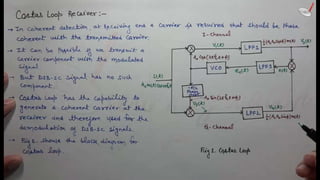 Costas Loop Receiver:-
→ In coherent detection at receiving end a carrier is required that should be phase
coherent with the transmitted carrier.
→ It can be possible if we transmit a
carrier component with the modulated
signal
→ But DSB-SC signal has no such
component.
→ Costas Loop has the capability to
generate a coherent carrier at the
receiver and therefore used for the
demodulation of DSB-SC signals.
→ Fig 1. shows the block diagram for
costas loop.
I - Channel
LPF1
VCO
LPF3
LPF2
Q - Channel
Fig 1. Costas Loop